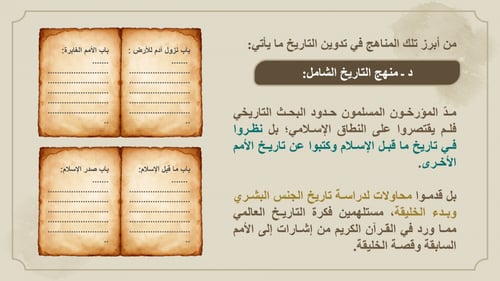 من أبرز تلك المناهج في تدوين التاريخ ما يأتي:
د ـ منهج التاريخ الشامل:
مدّ المؤرخون المسلمون حدود البحث التاريخي
فلم يقتصروا على النطاق الإسلامي؛ بل نظروا
في تاريخ ما قبل الإسلام وكتبوا عن تاريخ الأمم
الأخرى.
بل قدموا محاولات لدراسة تاريخ الجنس البشري
وبدء الخليقة، مستلهمين فكرة التاريخ العالمي
مما ورد في القرآن الكريم من إشارات إلى الأمم
السابقة وقصة الخليقة.
باب نزول آدم للأرض :
باب الأمم الغابرة:
باب ما قبل الإسلام:
باب صدر الإسلام: